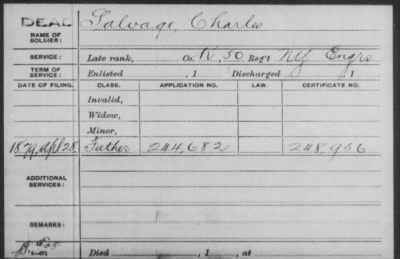 DEAD Salvage, Charles
NAME OF SOLDIER:
SERVICE: Late rank, Co. K, 50 Reg't NY Engrs
TERM OF SERVICE: Enlisted , 1 Discharged 1
DATE OF FILING. CLASS. APPLICATION NO. LAW. CERTIFICATE NO.
Invalid,
Widow,
Minor,
1879 Apl 28, Father 244,682 248,956
ADDITIONAL SERVICES:
REMARKS:
Died , 1 , at